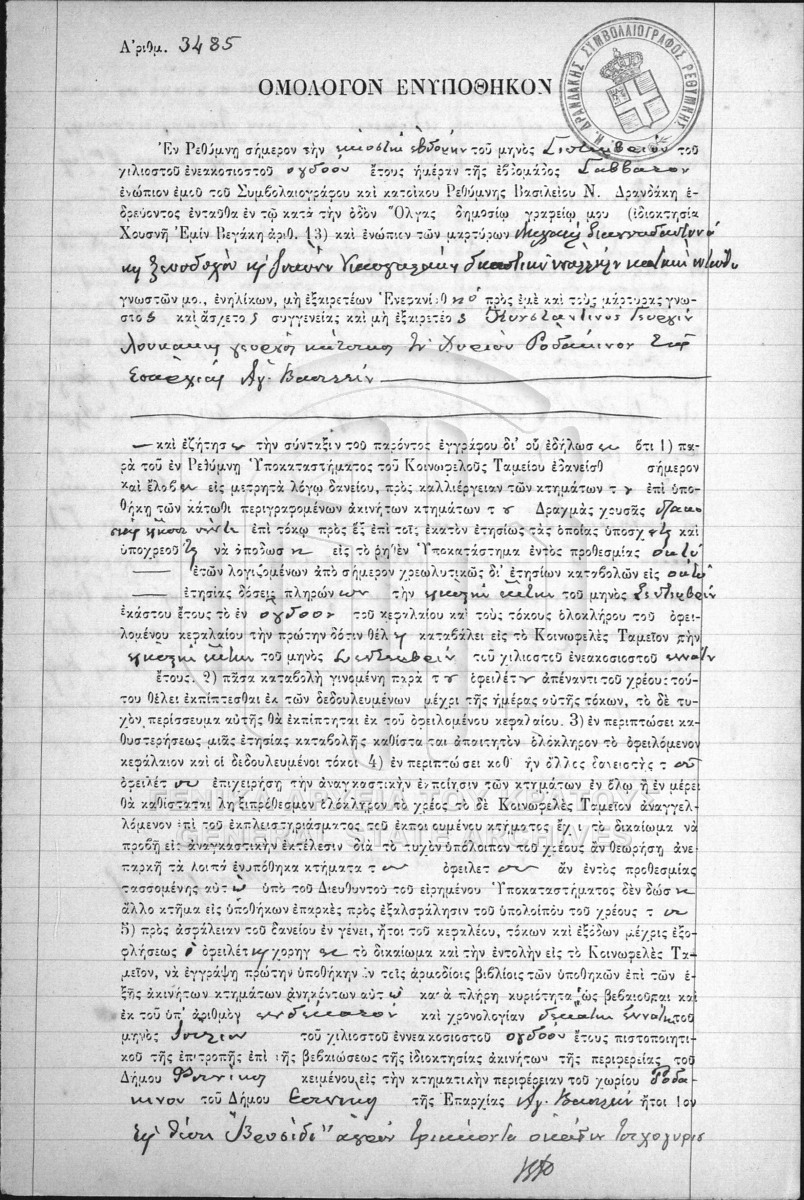 Ἀριθμ. 3485
ΟΜΟΛΟΓΟΝ ΕΝΥΠΟΘΗΚΟΝ
Ν. ΔΡΑΝΔΑΚΗΣ ΣΥΜΒΟΛΑΙΟΓΡΑΦΟΣ ΡΕΘΥΜΝΗΣ
Ἐν Ρεθύμνῃ σήμερον τὴν εἰκοστὴν ἑβδόμην τοῦ μηνὸς Σεπτεμβρίου τοῦ
χιλιοστοῦ ἐνεακοσιοστοῦ ὀγδόου ἔτους ἡμέραν τῆς ἑβδομάδος Σάββατον
ἐνώπιον ἐμοῦ τοῦ Συμβολαιογράφου καὶ κατοίκου Ρεθύμνης Βασιλείου Ν. Δρανδάκη ἑ-
δρεύοντος ἐνταῦθα ἐν τῷ κατὰ τὴν ὁδὸν Ὄλγας δημοσίῳ γραφείῳ μου (ἰδιοκτησία
Χουσνῆ Ἐμὶν Βεγάκη ἀριθ. 13) καὶ ἐνώπιον τῶν μαρτύρων
γνωστῶν μο., ἐνηλίκων, μὴ ἐξαιρετέων Ἐνεφανίσθη ὁ πρὸς ἐμὲ καὶ τοὺς μάρτυρας γνω-
στὸς καὶ ἄσχετος συγγενείας καὶ μὴ ἐξαιρετέος Κωνσταντῖνος Γεωργίου
Λουκάκης γεωργὸς κάτοικος τοῦ Χωρίου Ροδάκινον τῆς
Ἐπαρχίας Ἁγ. Βασιλείου
— καὶ ἐζήτησεν τὴν σύνταξιν τοῦ παρόντος ἐγγράφου δι' οὗ ἐδήλωσεν ὅτι 1) πα-
ρὰ τοῦ ἐν Ρεθύμνῃ Ὑποκαταστήματος τοῦ Κοινωφελοῦς Ταμείου ἐδανείσθ σήμερον
καὶ ἔλαβεν εἰς μετρητὰ λόγῳ δανείου, πρὸς καλλιέργειαν τῶν κτημάτων του ἐπὶ ὑπο-
θήκῃ τῶν κάτωθι περιγραφομένων ἀκινήτων κτημάτων του Δραχμὰς χρυσᾶς διακο-
σίας εἴκοσι πέντε ἐπὶ τόκῳ πρὸς ἓξ ἐπὶ τοῖς ἑκατὸν ἐτησίως τὰς ὁποίας ὑποσχεῖται καὶ
ὑποχρεοῦται νὰ ἀποδώσῃ εἰς τὸ ῥηθὲν Ὑποκατάστημα ἐντὸς προθεσμίας ὀκτὼ
— ἐτῶν λογιζομένων ἀπὸ σήμερον χρεωλυτικῶς δι' ἐτησίων καταβολῶν εἰς ὀκτὼ
— ἐτησίας δόσεις πληρών τὴν εἰκοστὴν ἕκτην τοῦ μηνὸς Σεπτεμβρίου
ἑκάστου ἔτους τὸ ἓν ὄγδοον τοῦ κεφαλαίου καὶ τοὺς τόκους ὁλοκλήρου τοῦ ὀφει-
λομένου κεφαλαίου τὴν πρώτην δόσιν θέλει καταβάλει εἰς τὸ Κοινωφελὲς Ταμεῖον τὴν
εἰκοστὴν ἕκτην τοῦ μηνὸς Σεπτεμβρίου τοῦ χιλιοστοῦ ἐνεακοσιοστοῦ ἐννάτου
ἔτους. 2) πᾶσα καταβολὴ γινομένη παρὰ τοῦ ὀφειλέτου ἀπέναντι τοῦ χρέους τού-
του θέλει ἐκπίπτεσθαι ἐκ τῶν δεδουλευμένων μέχρι τῆς ἡμέρας αὐτῆς τόκων, τὸ δὲ τυ-
χὸν περίσσευμα αὐτῆς θὰ ἐκπίπτηται ἐκ τοῦ ὀφειλομένου κεφαλαίου. 3) ἐν περιπτώσει κα-
θυστερήσεως μιᾶς ἐτησίας καταβολῆς καθίστα ται ἀπαιτητὸν ὁλόκληρον τὸ ὀφειλόμενον
κεφάλαιον καὶ οἱ δεδουλευμένοι τόκοι 4) ἐν περιπτώσει καθ' ἣν ἄλλος δανειστὴς τοῦ
ὀφειλέτου ἐπιχειρήσῃ τὴν ἀναγκαστικὴν ἐκποίησιν τῶν κτημάτων ἐν ὅλῳ ἢ ἐν μέρει
θὰ καθίσταται ληξιπρόθεσμον ὁλόκληρον τὸ χρέος τὸ δὲ Κοινωφελὲς Ταμεῖον ἀναγγελ-
λόμενον ἐπὶ τοῦ ἐκπλειστηριάσματος τοῦ ἐκποιουμένου κτήματος ἔχει τὸ δικαίωμα νὰ
προβῇ εἰς ἀναγκαστικὴν ἐκτέλεσιν διὰ τὸ τυχὸν ὑπόλοιπον τοῦ χρέους ἂν θεωρήσῃ ἀνε-
παρκῆ τὰ λοιπὰ ἐνυπόθηκα κτήματα τοῦ ὀφειλέτου ἂν ἐντὸς προθεσμίας
τασσομένης αὐτῷ ὑπὸ τοῦ Διευθυντοῦ τοῦ εἰρημένου Ὑποκαταστήματος δὲν δώσῃ
ἄλλο κτῆμα εἰς ὑποθήκων ἐπαρκὲς πρὸς ἐξαλσφάλησιν τοῦ ὑπολοίπου τοῦ χρέους του
5) πρὸς ἀσφάλειαν τοῦ δανείου ἐν γένει, ἤτοι τοῦ κεφαλέου, τόκων καὶ ἐξόδων μέχρις ἐξο-
φλήσεως ὁ ὀφειλέτης χορηγεῖ τὸ δικαίωμα καὶ τὴν ἐντολὴν εἰς τὸ Κοινωφελὲς Τα-
μεῖον, νὰ ἐγγράψῃ πρώτην ὑποθήκην ἐν τοῖς ἁρμοδίοις βιβλίοις τῶν ὑποθηκῶν ἐπὶ τῶν ἑ-
ξῆς ἀκινήτων κτημάτων ἀνηκόντων αὐτῷ κατὰ πλήρη κυριότητα, ὡς βεβαιοῦται καὶ
ἐκ τοῦ ὑπ' ἀριθμὸν ἑνδέκατον καὶ χρονολογίαν δεκάτην ἐννάτην τοῦ
μηνὸς Ἰουλίου τοῦ χιλιοστοῦ ἐννεακοσιοστοῦ ὀγδόου ἔτους πιστοποιητι-
κοῦ τῆς ἐπιτροπῆς ἐπὶ τῆς βεβαιώσεως τῆς ἰδιοκτησίας ἀκινήτων τῆς περιφερείας τοῦ
Δήμου Φοίνικος κειμένου εἰς τὴν κτηματικὴν περιφέρειαν τοῦ χωρίου Ροδά-
κινον τοῦ Δήμου Φοίνικος τῆς Ἐπαρχίας Ἁγ. Βασιλείου ἤτοι 1ον
Εἰς θέσιν "Βρυσίδι" ἀγρὸν τριάκοντα
ΓΕΝΙΚΑ ΑΡΧΕΙΑ ΤΟΥ ΚΡΑΤΟΥΣ
GENERAL STATE ARCHIVES